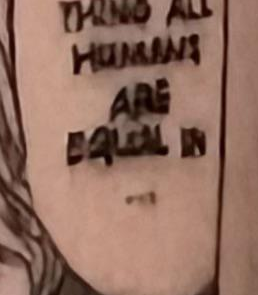 THING ALL
HUMANS
ARE
EQUAL IN